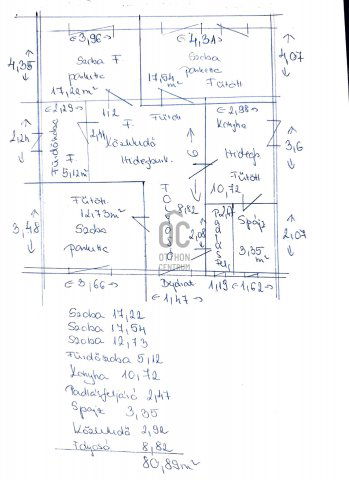 3,96
4,31
4,35
Szoba F
parketta
17,22m²
Szoba
17,54m² parketta
Fűtött
4,07
2,29
1,12
Fűtött
2,98
Konyha
2,24
Fürdőszoba
F.
5,12m²
2,44
F.
Közlekedő
Hidegburk.
6
Hidegb.
Fűtött
10,72
3,6
Fűtött
12,73m²
Szoba
parketta
3,48
8,82
2,08
P2,47
Spájz
3,35
m²
2,07
OC
OTTHON
CENTRUM
3,66
Bejárat
1,47
1,19
1,62
Szoba 17,22
Szoba 17,54
Szoba 12,73
Fürdőszoba 5,12
Konyha 10,72
Padlásfeljáró 2,47
Spájz 3,35
Közlekedő 2,92
Tároló 8,82
80,89m²